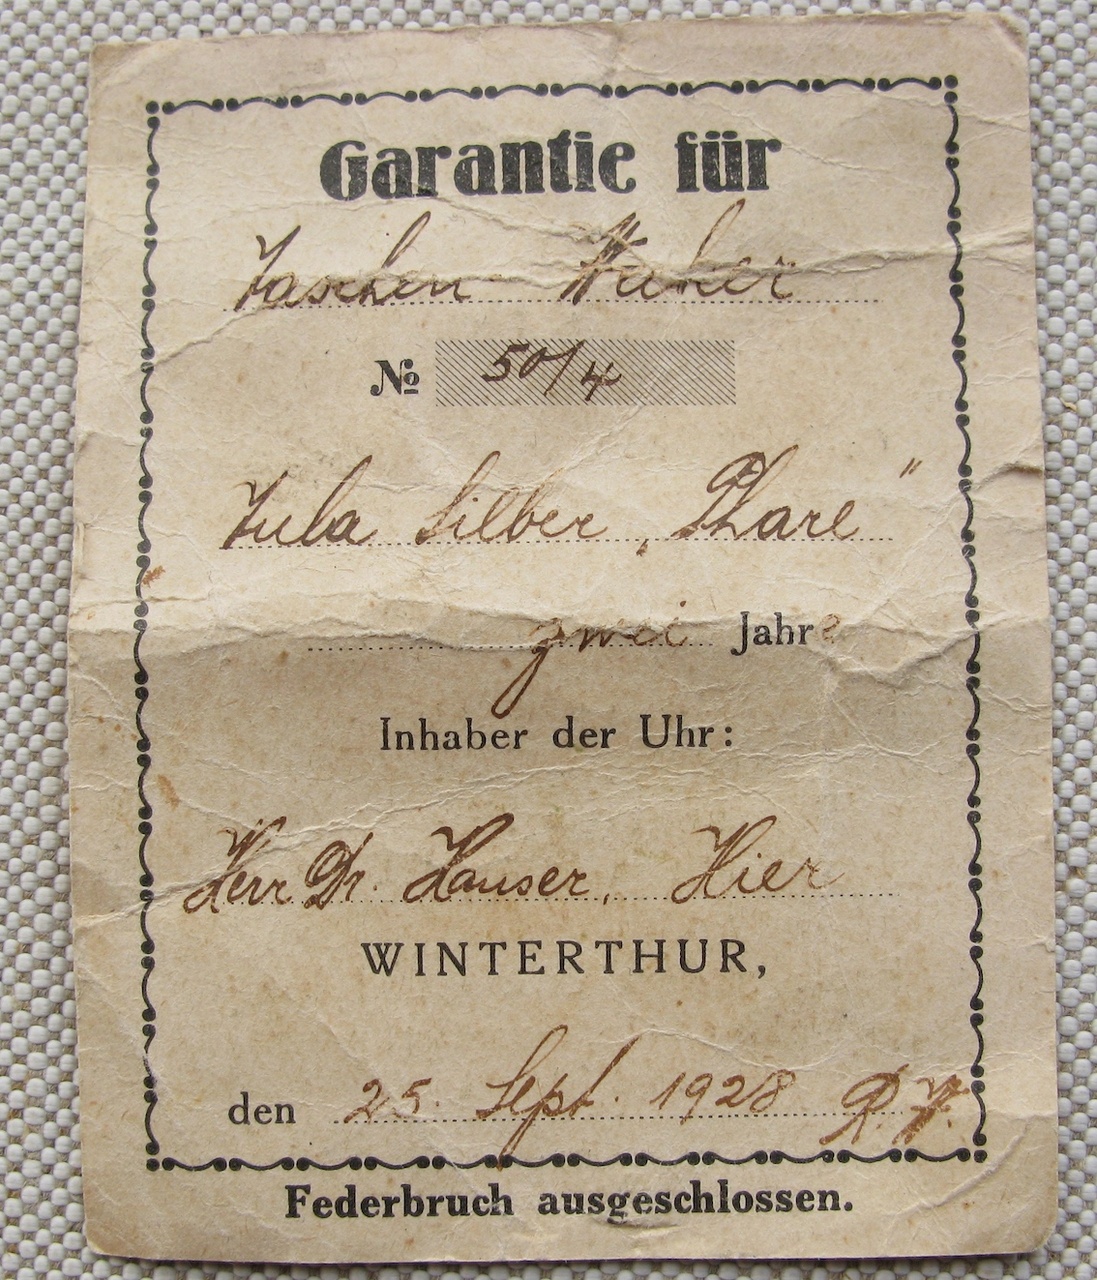 Garantie für
Taschen Wecker
№ 50/4
Tula Silber „Phare“
zwei Jahre
Inhaber der Uhr:
Herr Dr. Hauser, Hier
WINTERTHUR,
den 25. Sept. 1928
Federbruch ausgeschlossen.